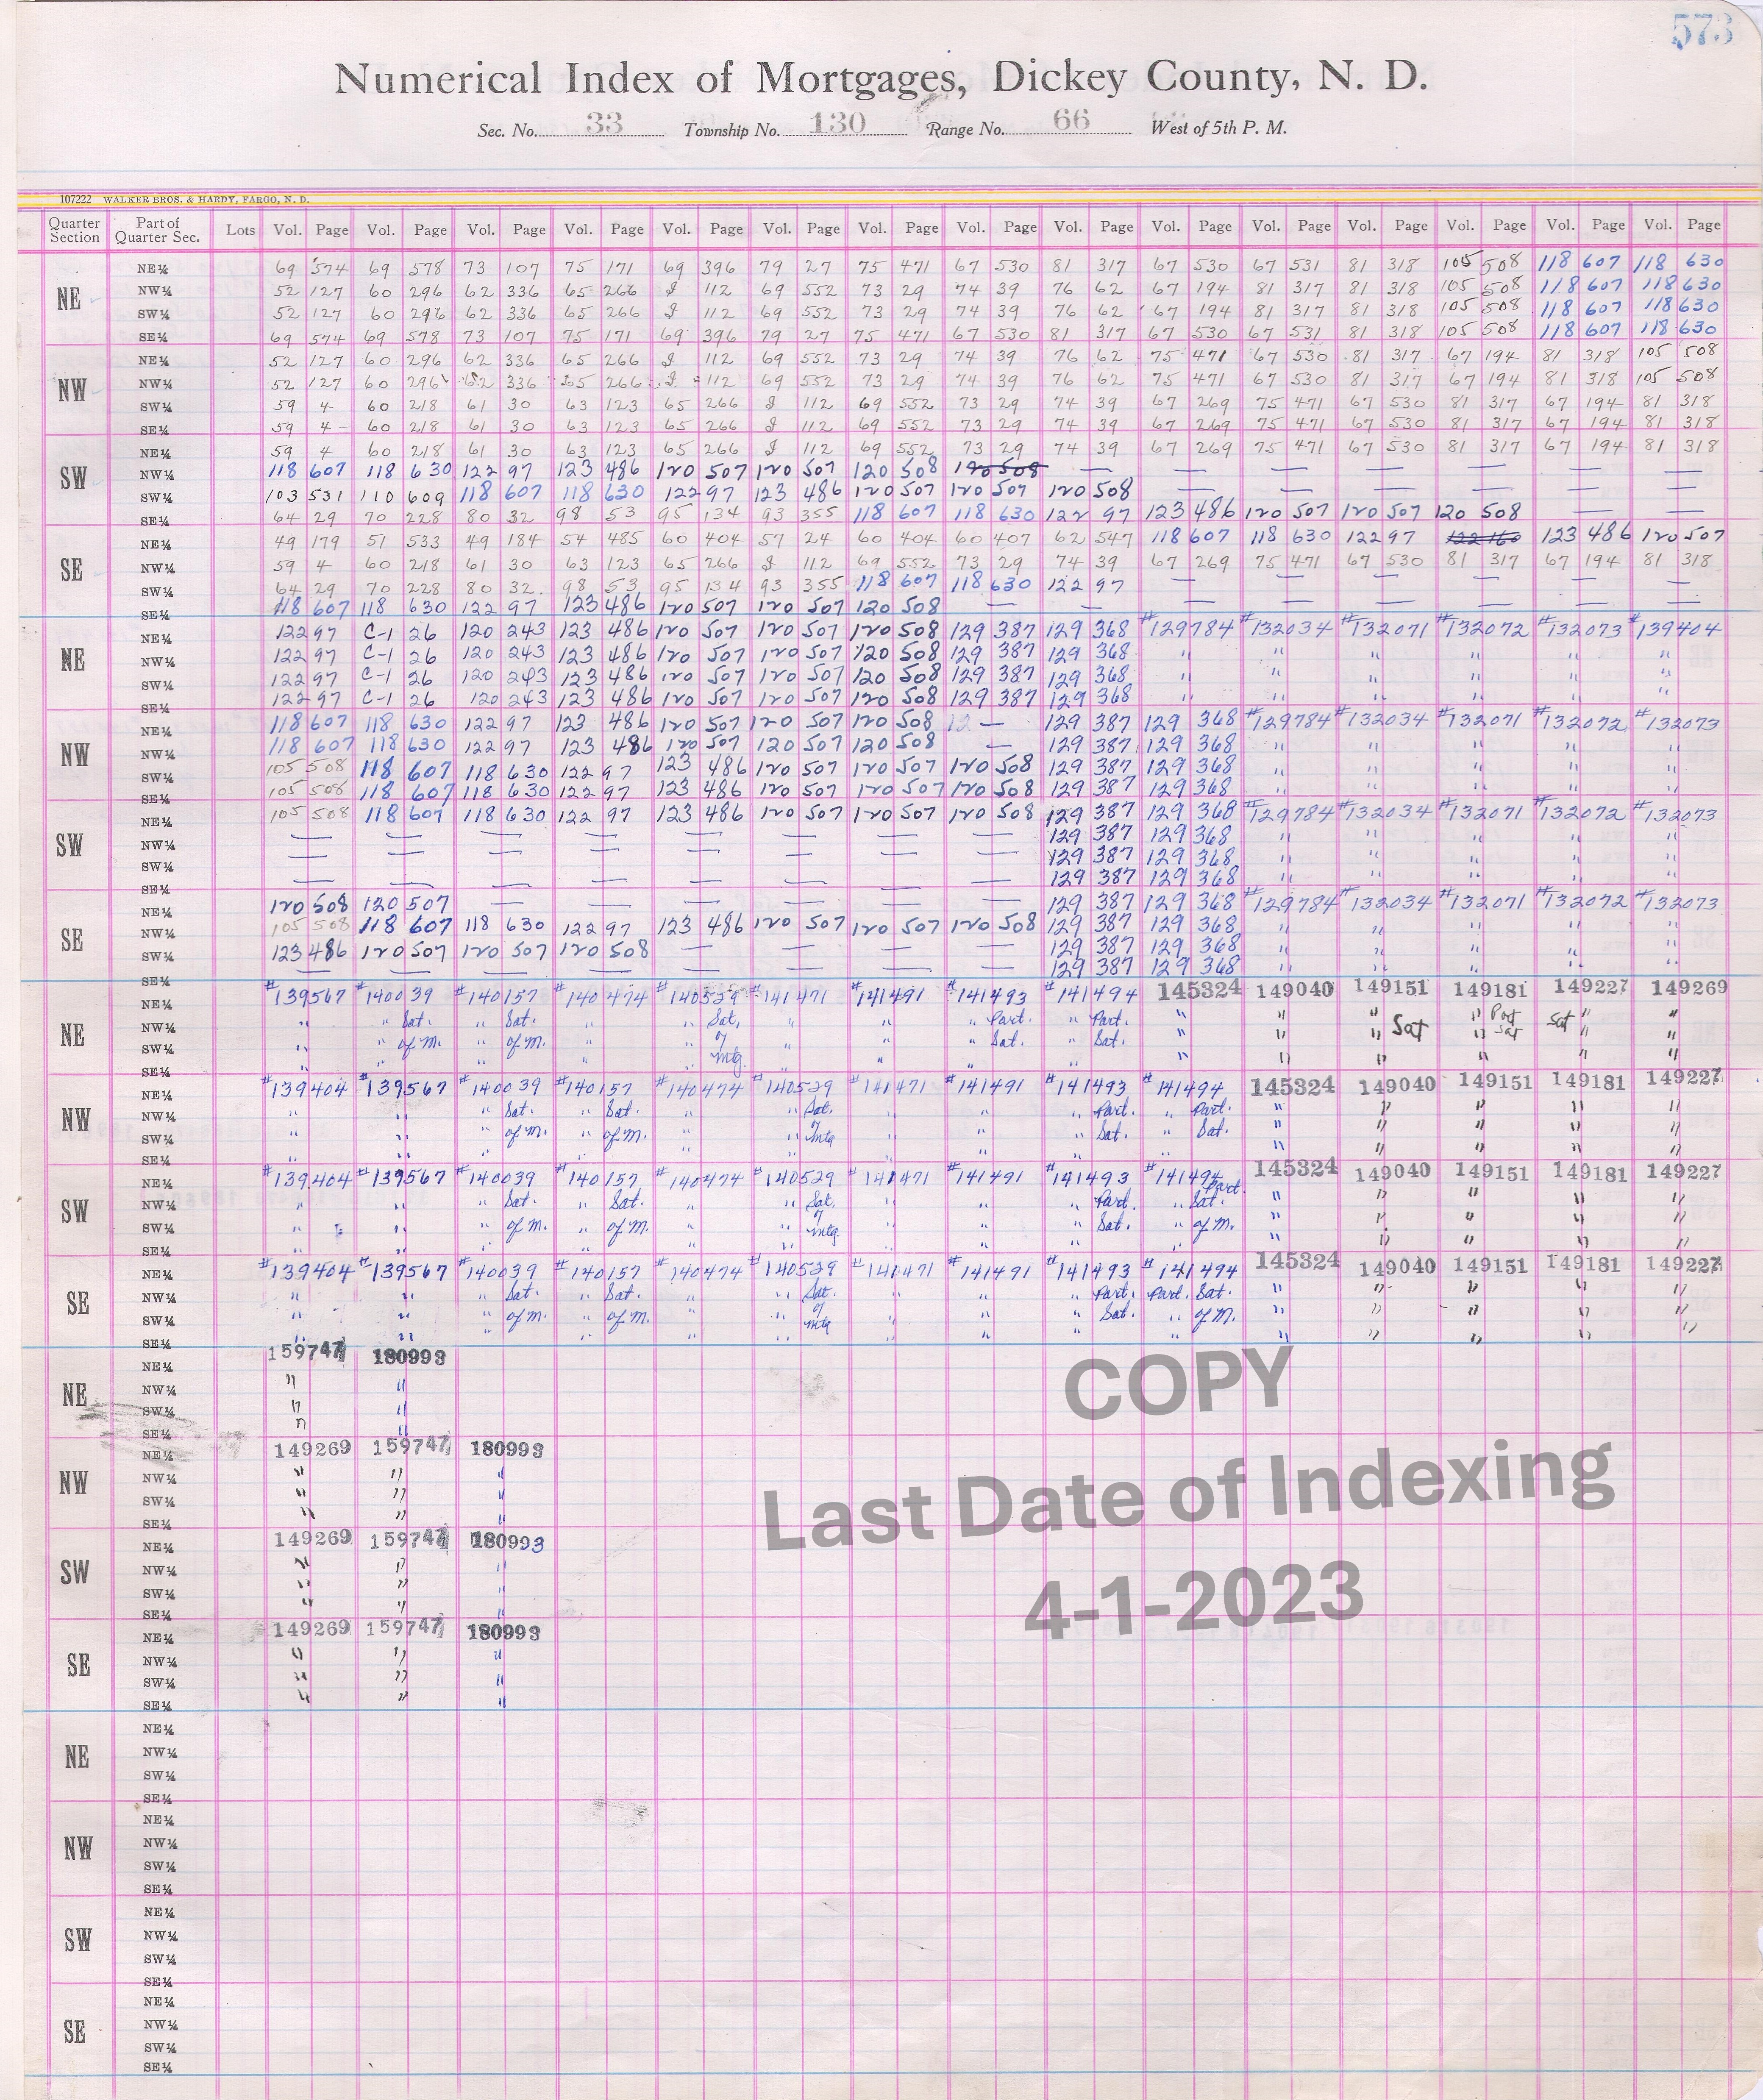 573
Numerical Index of Mortgages, Dickey County, N. D.
Sec. No. 33 Township No. 130 Range No. 66 West of 5th P. M.
107222 WALKER BROS. & HARDY, FARGO, N. D.
Quarter Section Part of Quarter Sec. Lots Vol. Page Vol. Page Vol. Page Vol. Page Vol. Page Vol. Page Vol. Page Vol. Page Vol. Page Vol. Page Vol. Page Vol. Page Vol. Page Vol. Page Vol. Page
NE NE¼ 69 574 69 578 73 107 75 171 69 396 79 27 75 471 67 530 81 317 67 530 67 531 81 318 105 508 118 607 118 630
NW¼ 52 127 60 296 62 336 65 266 J 112 69 552 73 29 74 39 76 62 67 194 81 317 81 318 105 508 118 607 118 630
SW¼ 52 127 60 296 62 336 65 266 J 112 69 552 73 29 74 39 76 62 67 194 81 317 81 318 105 508 118 607 118 630
SE¼ 69 574 69 578 73 107 75 171 69 396 79 27 75 471 67 530 81 317 67 530 67 531 81 318 105 508 118 607 118 630
NW NE¼ 52 127 60 296 62 336 65 266 J 112 69 552 73 29 74 39 76 62 75 471 67 530 81 317 67 194 81 318 105 508
NW¼ 52 127 60 296 62 336 65 266 J 112 69 552 73 29 74 39 76 62 75 471 67 530 81 317 67 194 81 318 105 508
SW¼ 59 4 60 218 61 30 63 123 65 266 J 112 69 552 73 29 74 39 67 269 75 471 67 530 81 317 67 194 81 318
SE¼ 59 4 60 218 61 30 63 123 65 266 J 112 69 552 73 29 74 39 67 269 75 471 67 530 81 317 67 194 81 318
SW NE¼ 59 4 60 218 61 30 63 123 65 266 J 112 69 552 73 29 74 39 67 269 75 471 67 530 81 317 67 194 81 318
NW¼ 118 607 118 630 122 97 123 486 120 507 120 507 120 508 120 508 — — — — — — —
SW¼ 103 531 110 609 118 607 118 630 122 97 123 486 120 507 120 507 120 508 — — — — — —
SE¼ 64 29 70 228 80 32 98 53 95 134 93 355 118 607 118 630 122 97 123 486 120 507 120 507 120 508 — —
SE NE¼ 49 179 51 533 49 184 54 485 60 404 57 24 60 404 60 407 62 547 118 607 118 630 122 97 122 160 123 486 120 507
NW¼ 59 4 60 218 61 30 63 123 65 266 J 112 69 552 73 29 74 39 67 269 75 471 67 530 81 317 67 194 81 318
SW¼ 64 29 70 228 80 32 98 53 95 134 93 355 118 607 118 630 122 97 — — — — — —
SE¼ 118 607 118 630 122 97 123 486 120 507 120 507 120 508 — — — — — — — —
NE NE¼ 122 97 C-1 26 120 243 123 486 120 507 120 507 120 508 129 387 129 368 #129784 #132034 #132071 #132072 #132073 #139404
NW¼ 122 97 C-1 26 120 243 123 486 120 507 120 507 120 508 129 387 129 368 " " " " " "
SW¼ 122 97 C-1 26 120 243 123 486 120 507 120 507 120 508 129 387 129 368 " " " " " "
SE¼ 122 97 C-1 26 120 243 123 486 120 507 120 507 120 508 129 387 129 368 " " " " " "
NW NE¼ 118 607 118 630 122 97 123 486 120 507 120 507 120 508 12 — 129 387 129 368 #129784 #132034 #132071 #132072 #132073
NW¼ 118 607 118 630 122 97 123 486 120 507 120 507 120 508 — 129 387 129 368 " " " " "
SW¼ 105 508 118 607 118 630 122 97 123 486 120 507 120 507 120 508 129 387 129 368 " " " " "
SE¼ 105 508 118 607 118 630 122 97 123 486 120 507 120 507 120 508 129 387 129 368 " " " " "
SW NE¼ 105 508 118 607 118 630 122 97 123 486 120 507 120 507 120 508 129 387 129 368 #129784 #132034 #132071 #132072 #132073
NW¼ — — — — — — — — 129 387 129 368 " " " " "
SW¼ — — — — — — — — 129 387 129 368 " " " " "
SE¼ — — — — — — — — 129 387 129 368 " " " " "
SE NE¼ 120 508 120 507 — — — — — — 129 387 129 368 #129784 #132034 #132071 #132072 #132073
NW¼ 105 508 118 607 118 630 122 97 123 486 120 507 120 507 120 508 129 387 129 368 " " " " "
SW¼ 123 486 120 507 120 507 120 508 — — — — 129 387 129 368 " " " " "
SE¼ — — — — — — — — 129 387 129 368 " " " " "
NE NE¼ #139567 #140039 #140157 #140474 #140529 #141471 #141491 #141493 #141494 145324 149040 149151 149181 149227 149269
NW¼ " " Sat. " Sat. " " Sat. " " " Part. " Part. " " " Sat " Part Sat " "
SW¼ " of M. " of M. " " of " " Sat. " Sat. " " " " Sat " "
SE¼ " " " " " mtg. " " " " " " " " "
NW NE¼ #139404 #139567 #140039 #140157 #140474 #140529 #141471 #141491 #141493 #141494 145324 149040 149151 149181 149227
NW¼ " " " Sat. " Sat. " " Sat. " " Part. " Part. " " " " "
SW¼ " " " of M. " of M. " " of mtg " " Sat. " Sat. " " " " "
SE¼ " " " " " " " " " " " " " "
SW NE¼ #139404 #139567 #140039 #140157 #140474 #140529 #141471 #141491 #141493 #141494 Part. 145324 149040 149151 149181 149227
NW¼ " " " Sat. " Sat. " " Sat. " " Part. " Sat. " " " " "
SW¼ " " " of M. " of M. " " of mtg. " " Sat. " of M. " " " " "
SE¼ " " " " " " " " " " " " " "
SE NE¼ #139404 #139567 #140039 #140157 #140474 #140529 #141471 #141491 #141493 #141494 145324 149040 149151 149181 149227
NW¼ " " " Sat. " Sat. " " Sat. " " Part. Part. Sat. " " " " "
SW¼ " " " of M. " of M. " " of mtg " " Sat. " of M. " " " " "
SE¼ " " " " " " " " " " " " " "
NE NE¼ 159747 180993
NW¼ " "
SW¼ " "
SE¼ " "
NW NE¼ 149269 159747 180993
NW¼ " " "
SW¼ " " "
SE¼ " " "
SW NE¼ 149269 159747 180993
NW¼ " " "
SW¼ " " "
SE¼ " " "
SE NE¼ 149269 159747 180993
NW¼ " " "
SW¼ " " "
SE¼ " " "
COPY
Last Date of Indexing
4-1-2023
NE NE¼
NW¼
SW¼
SE¼
NW NE¼
NW¼
SW¼
SE¼
SW NE¼
NW¼
SW¼
SE¼
SE NE¼
NW¼
SW¼
SE¼